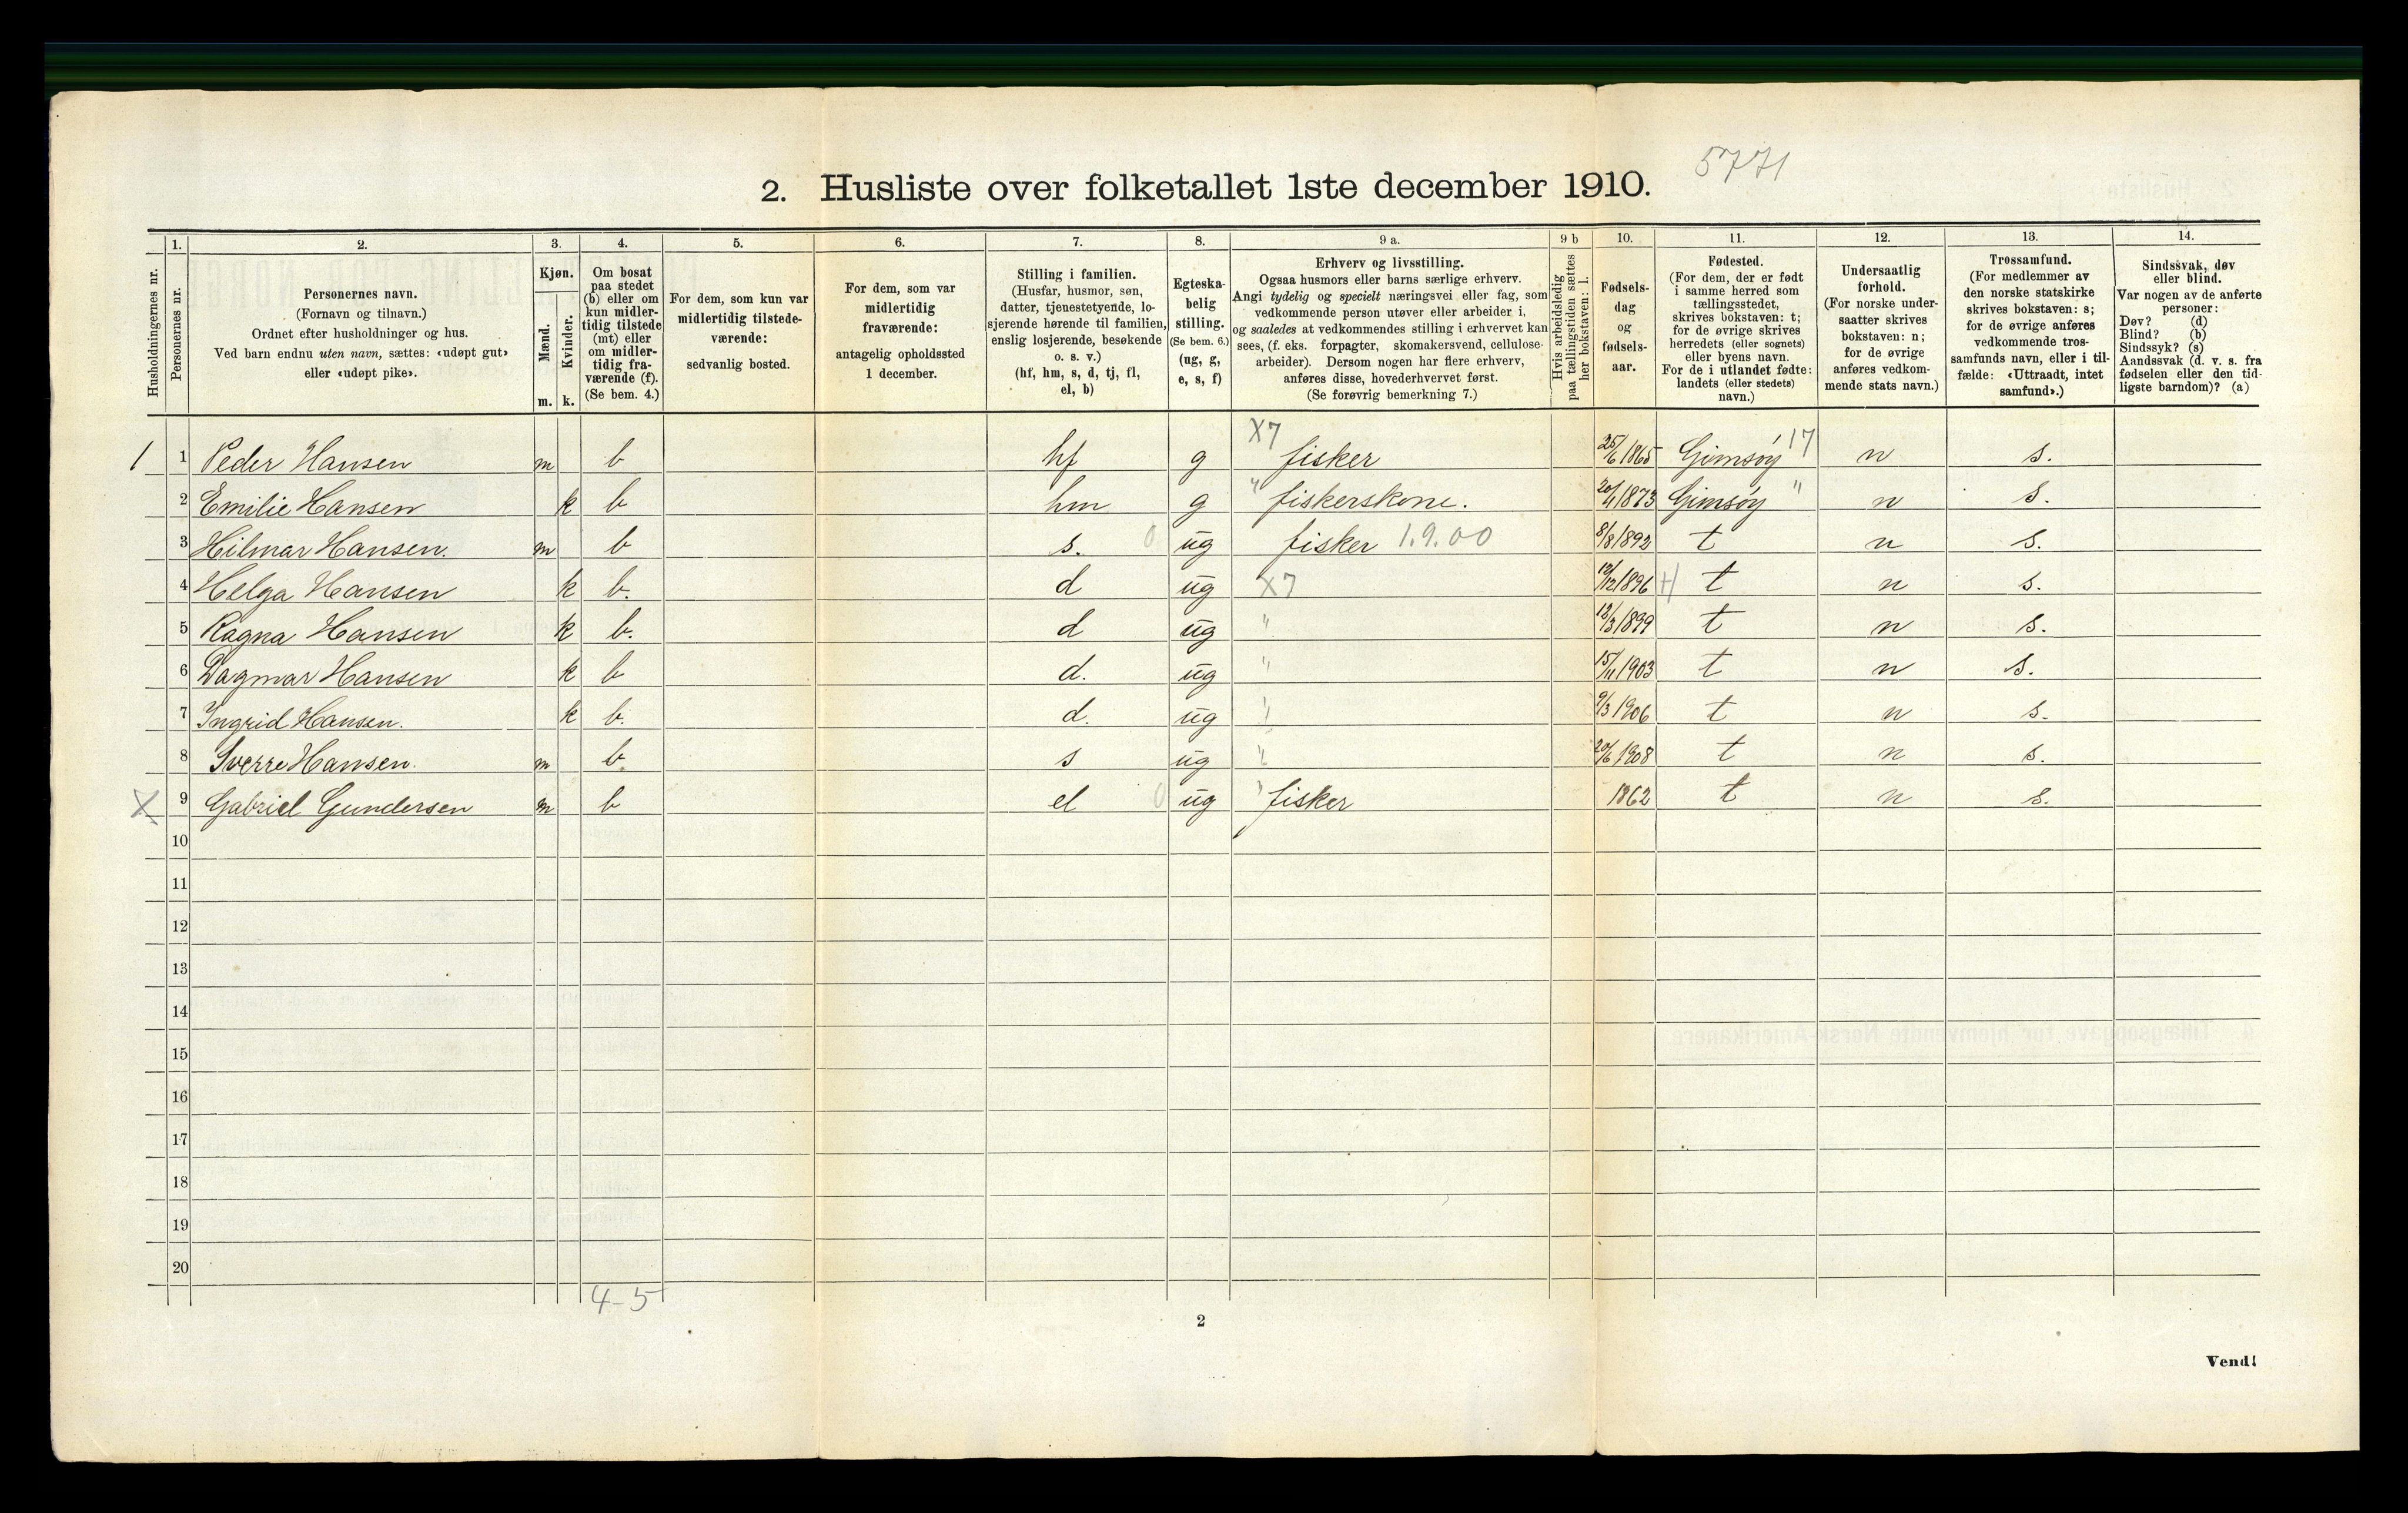 5771
2. Husliste over folketallet 1ste december 1910.
Husholdningernes nr.
1. Personernes nr.
2. Personernes navn.
(Fornavn og tilnavn.)
Ordnet efter husholdninger og hus.
Ved barn endnu uten navn, sættes: «udøpt gut»
eller «udøpt pike».
3. Kjøn.
Mænd. Kvinder.
m. k.
4. Om bosat
paa stedet
(b) eller om
kun midler-
tidig tilstede
(mt) eller
om midler-
tidig fra-
værende (f).
(Se bem. 4.)
5. For dem, som kun var
midlertidig tilstede-
værende:
sedvanlig bosted.
6. For dem, som var
midlertidig
fraværende:
antagelig opholdssted
1 december.
7. Stilling i familien.
(Husfar, husmor, søn,
datter, tjenestetyende, lo-
sjerende hørende til familien,
enslig losjerende, besøkende
o. s. v.)
(hf, hm, s, d, tj, fl,
el, b)
8. Egteska-
belig
stilling.
(Se bem. 6.)
(ug, g,
e, s, f)
9 a. Erhverv og livsstilling.
Ogsaa husmors eller barns særlige erhverv.
Angi tydelig og specielt næringsvei eller fag, som
vedkommende person utøver eller arbeider i,
og saaledes at vedkommendes stilling i erhvervet kan
sees, (f. eks. forpagter, skomakersvend, cellulose-
arbeider). Dersom nogen har flere erhverv,
anføres disse, hovederhvervet først.
(Se forøvrig bemerkning 7.)
9 b Hvis arbeidsledig
paa tællingstiden sættes
her bokstaven: l.
10. Fødsels-
dag
og
fødsels-
aar.
11. Fødested.
(For dem, der er født
i samme herred som
tællingsstedet,
skrives bokstaven: t;
for de øvrige skrives
herredets (eller sognets)
eller byens navn.
For de i utlandet fødte:
landets (eller stedets)
navn.)
12. Undersaatlig
forhold.
(For norske under-
saatter skrives
bokstaven: n;
for de øvrige
anføres vedkom-
mende stats navn.)
13. Trossamfund.
(For medlemmer av
den norske statskirke
skrives bokstaven: s;
for de øvrige anføres
vedkommende tros-
samfunds navn, eller i til-
fælde: «Uttraadt, intet
samfund».)
14. Sindssvak, døv
eller blind.
Var nogen av de anførte
personer:
Døv? (d)
Blind? (b)
Sindssyk? (s)
Aandssvak (d. v. s. fra
fødselen eller den tid-
ligste barndom)? (a)
1 1 Peder Hansen m b hf g X7 fisker 25/6 1865 Gimsøy 17 n s.
2 Emilie Hansen k b hm g " fiskerskone. 20/4 1873 Gimsøy " n s.
3 Hilmar Hansen. m b s. 0 ug fisker 1.9.00 8/8 1892 t n s.
4 Helga Hansen k b. d ug X7 12/12 1896 t n s.
5 Ragna Hansen k b. d ug " 12/3 1899 t n s.
6 Dagmar Hansen k b d. ug " 15/11 1903 t n s.
7 Ingrid Hansen. k b. d. ug " 9/3 1906 t n s.
8 Sverre Hansen. m b s ug " 20/6 1908 t n s.
X 9 Gabriel Gundersen m b el 0 ug fisker 1862 t n s.
10
11
12
13
14
15
16
17
18
19
20
4-5
2
Vend!